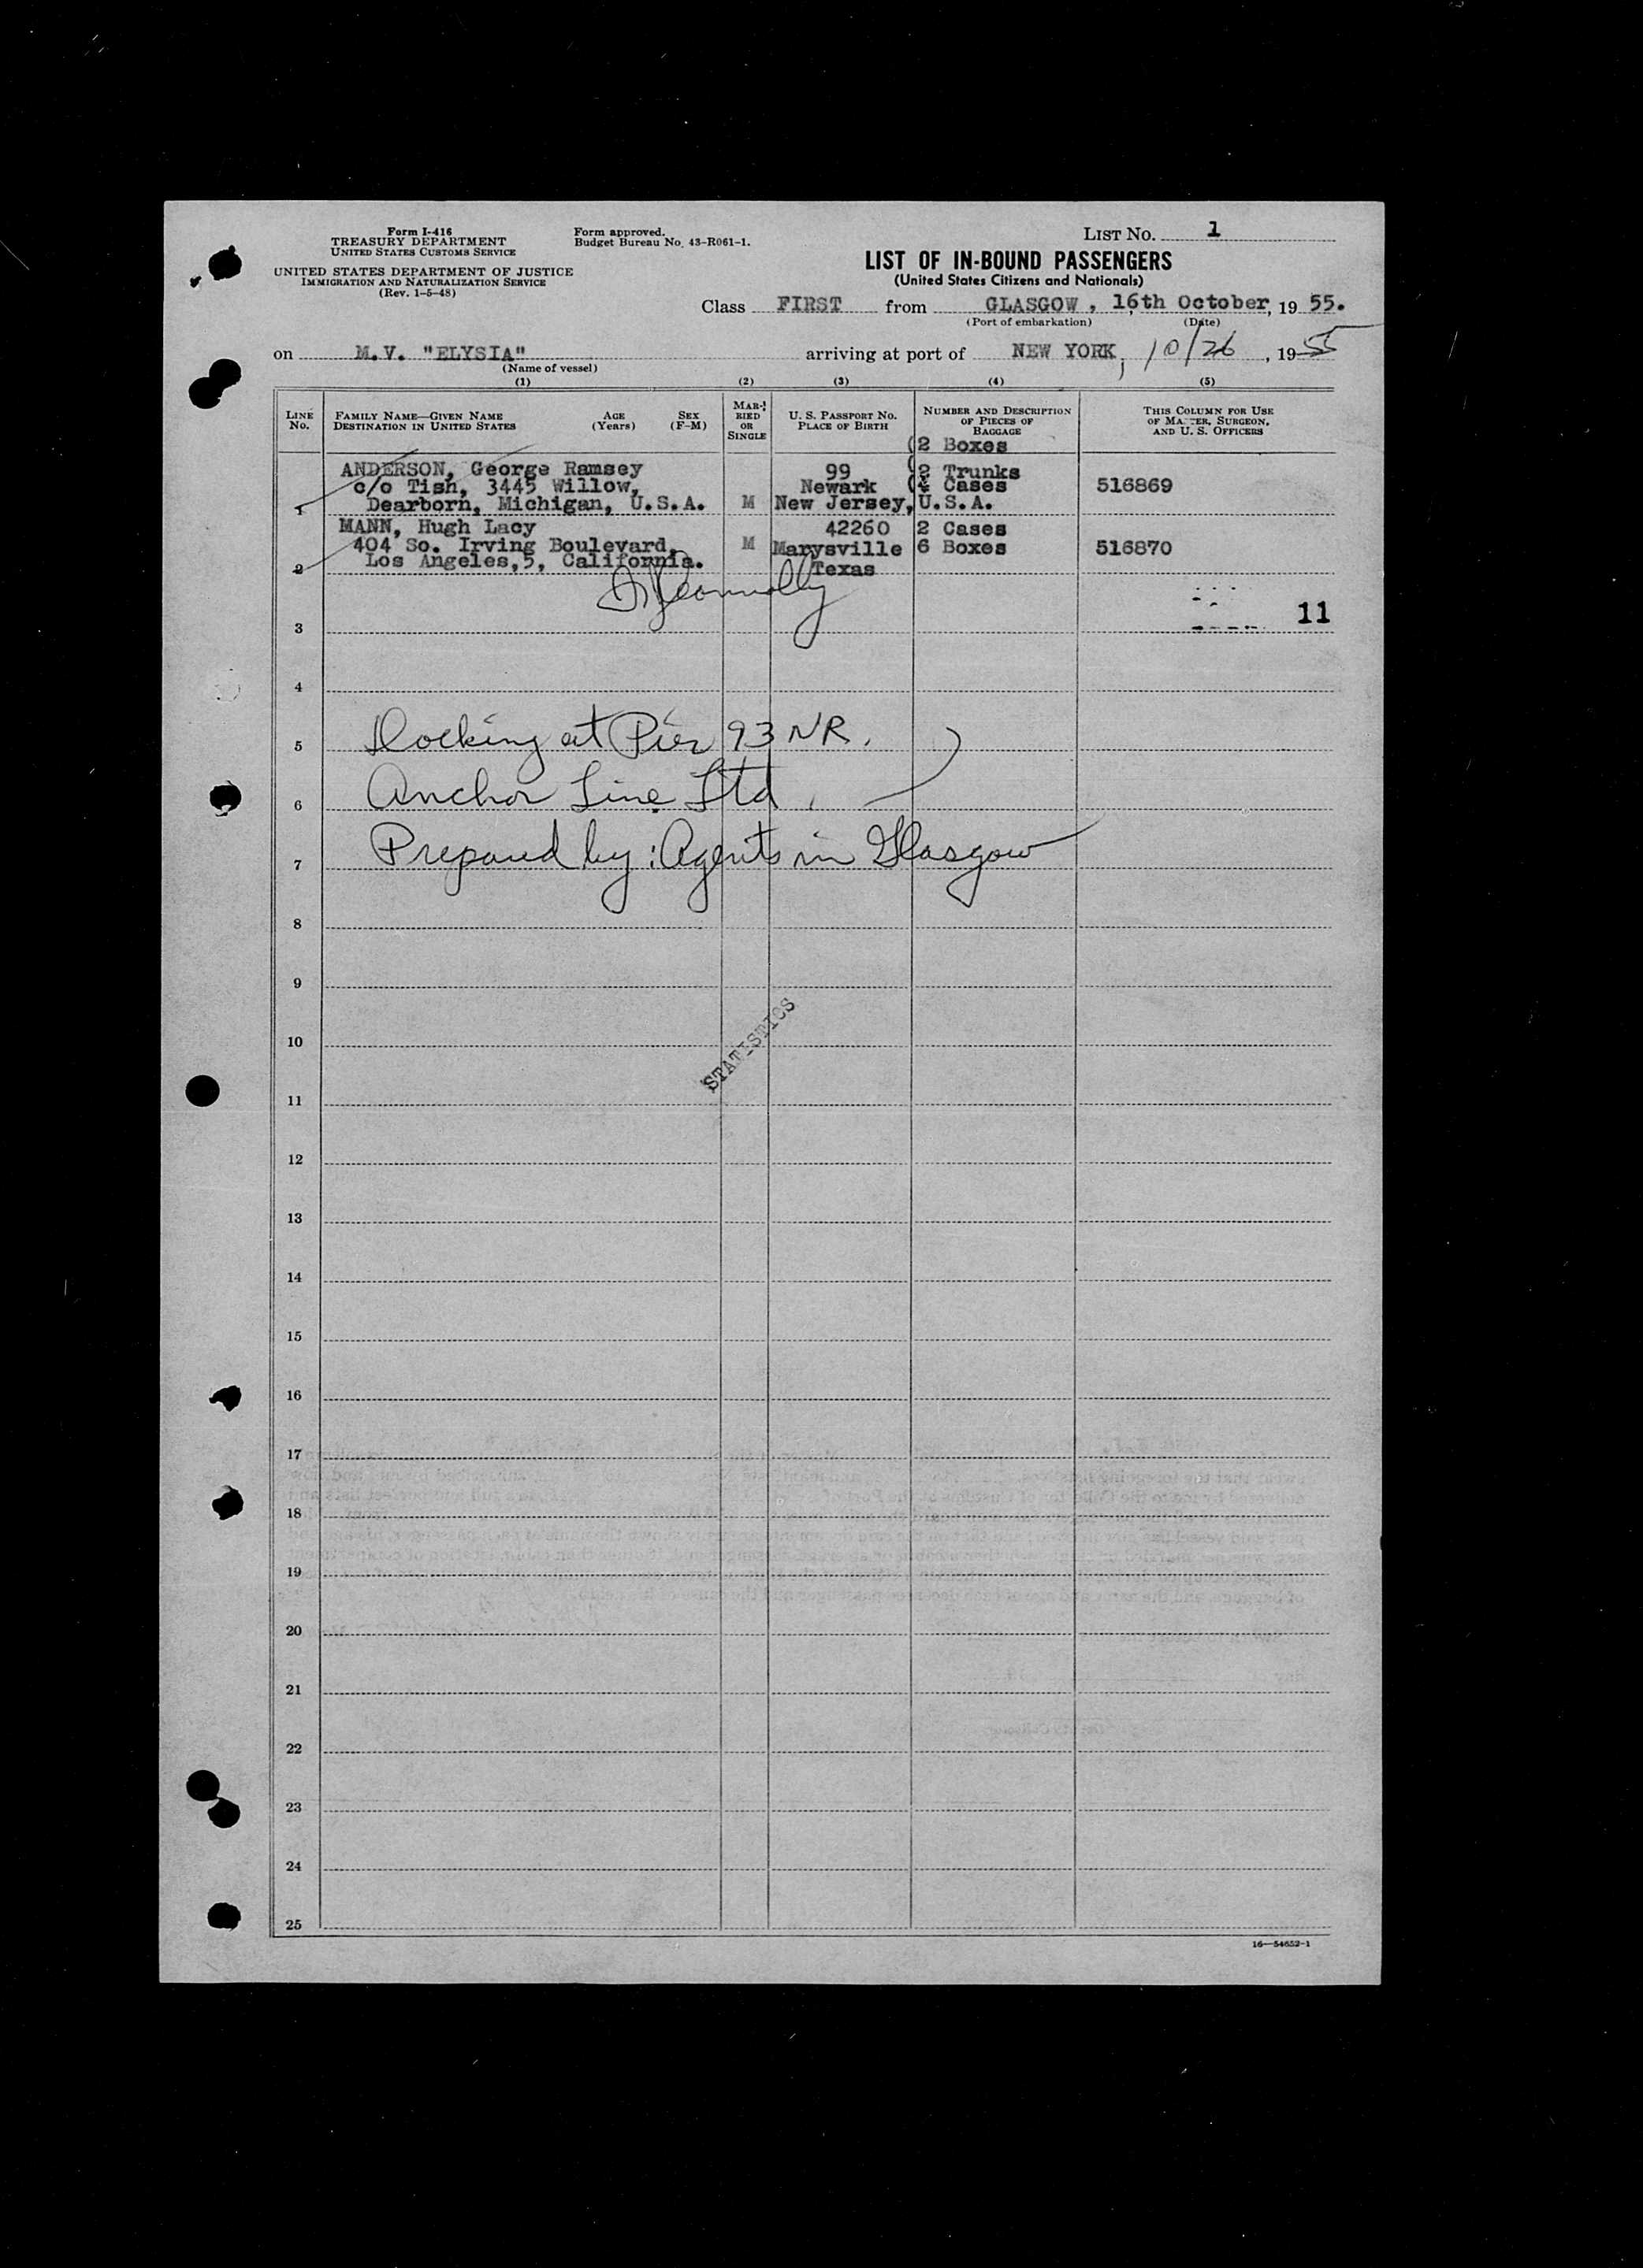 Form I-416
TREASURY DEPARTMENT
UNITED STATES CUSTOMS SERVICE
UNITED STATES DEPARTMENT OF JUSTICE
IMMIGRATION AND NATURALIZATION SERVICE
(Rev. 1-5-48)
Form approved.
Budget Bureau No. 43-R061-1.
LIST NO. 1
LIST OF IN-BOUND PASSENGERS
(United States Citizens and Nationals)
Class FIRST from GLASGOW, 16th October, 19 55.
(Port of embarkation) (Date)
on M.V. "ELYSIA" arriving at port of NEW YORK, 10/26, 1955
(Name of vessel)
(1) (2) (3) (4) (5)
LINE No. FAMILY NAME—GIVEN NAME DESTINATION IN UNITED STATES AGE (Years) SEX (F-M) MARRIED OR SINGLE U. S. PASSPORT NO. PLACE OF BIRTH NUMBER AND DESCRIPTION OF PIECES OF BAGGAGE THIS COLUMN FOR USE OF MASTER, SURGEON, AND U. S. OFFICERS
(2 Boxes
ANDERSON, George Ramsey 99 (2 Trunks
c/o Tish, 3445 Willow, Newark ( Cases 516869
1 Dearborn, Michigan, U.S.A. M New Jersey, U.S.A.
MANN, Hugh Lacy 42260 2 Cases
404 So. Irving Boulevard, M Marysville 6 Boxes 516870
2 Los Angeles,5, California. Texas
11
3
4
5 Docking at Pier 93 NR.
6 Anchor Line Ltd.
7 Prepared by: Agents in Glasgow
8
9
10
STATISTICS
11
12
13
14
15
16
17
18
19
20
21
22
23
24
25
16—54652-1